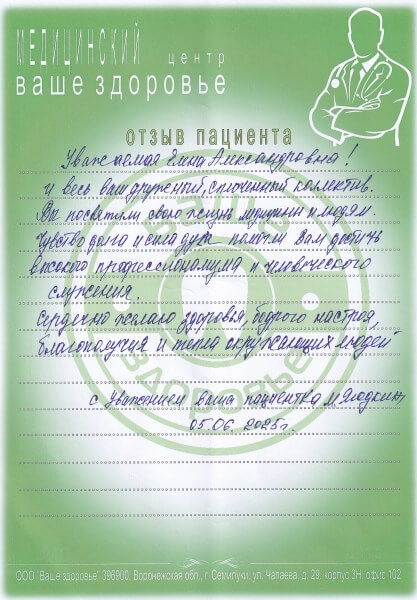 МЕДИЦИНСКИЙ центр
ваше здоровье
отзыв пациента
Уважаемая Елена Александровна!
и весь ваш дружный, сплоченный коллектив.
Вы посвятили свою жизнь служению людям.
Чувство долга и сила духа помогли Вам достичь
высокого профессионализма и человеческого
служения.
Сердечно желаю здоровья, бодрого настроя,
благополучия и тепла окружающих людей
с Уважением ваша пациентка
05.06.2025г.
ВАШЕ
ЗДОРОВЬЕ
ООО "Ваше здоровье" 396900, Воронежская обл., г. Семилуки, ул. Чапаева, д. 29, корпус 3Н, офис 102